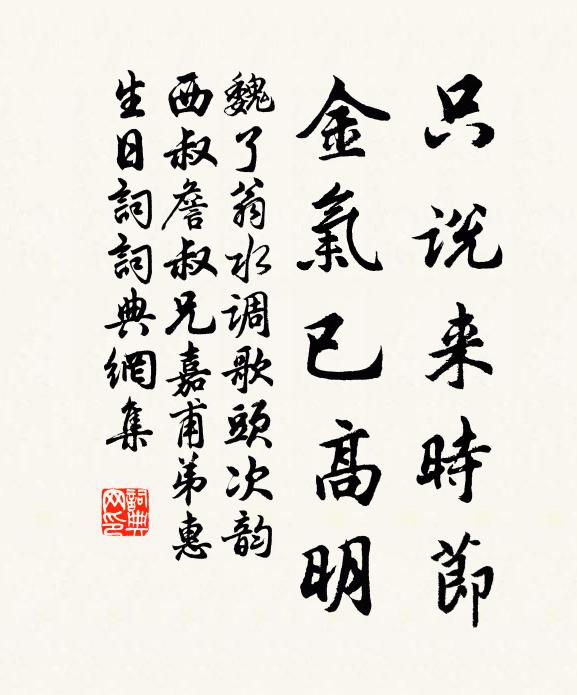 只说来時節
金氣已高明
魏了翁水调歌頭次韵
西叔詹叔兄嘉甫弟惠
生日詞詞典網集
詞典网印